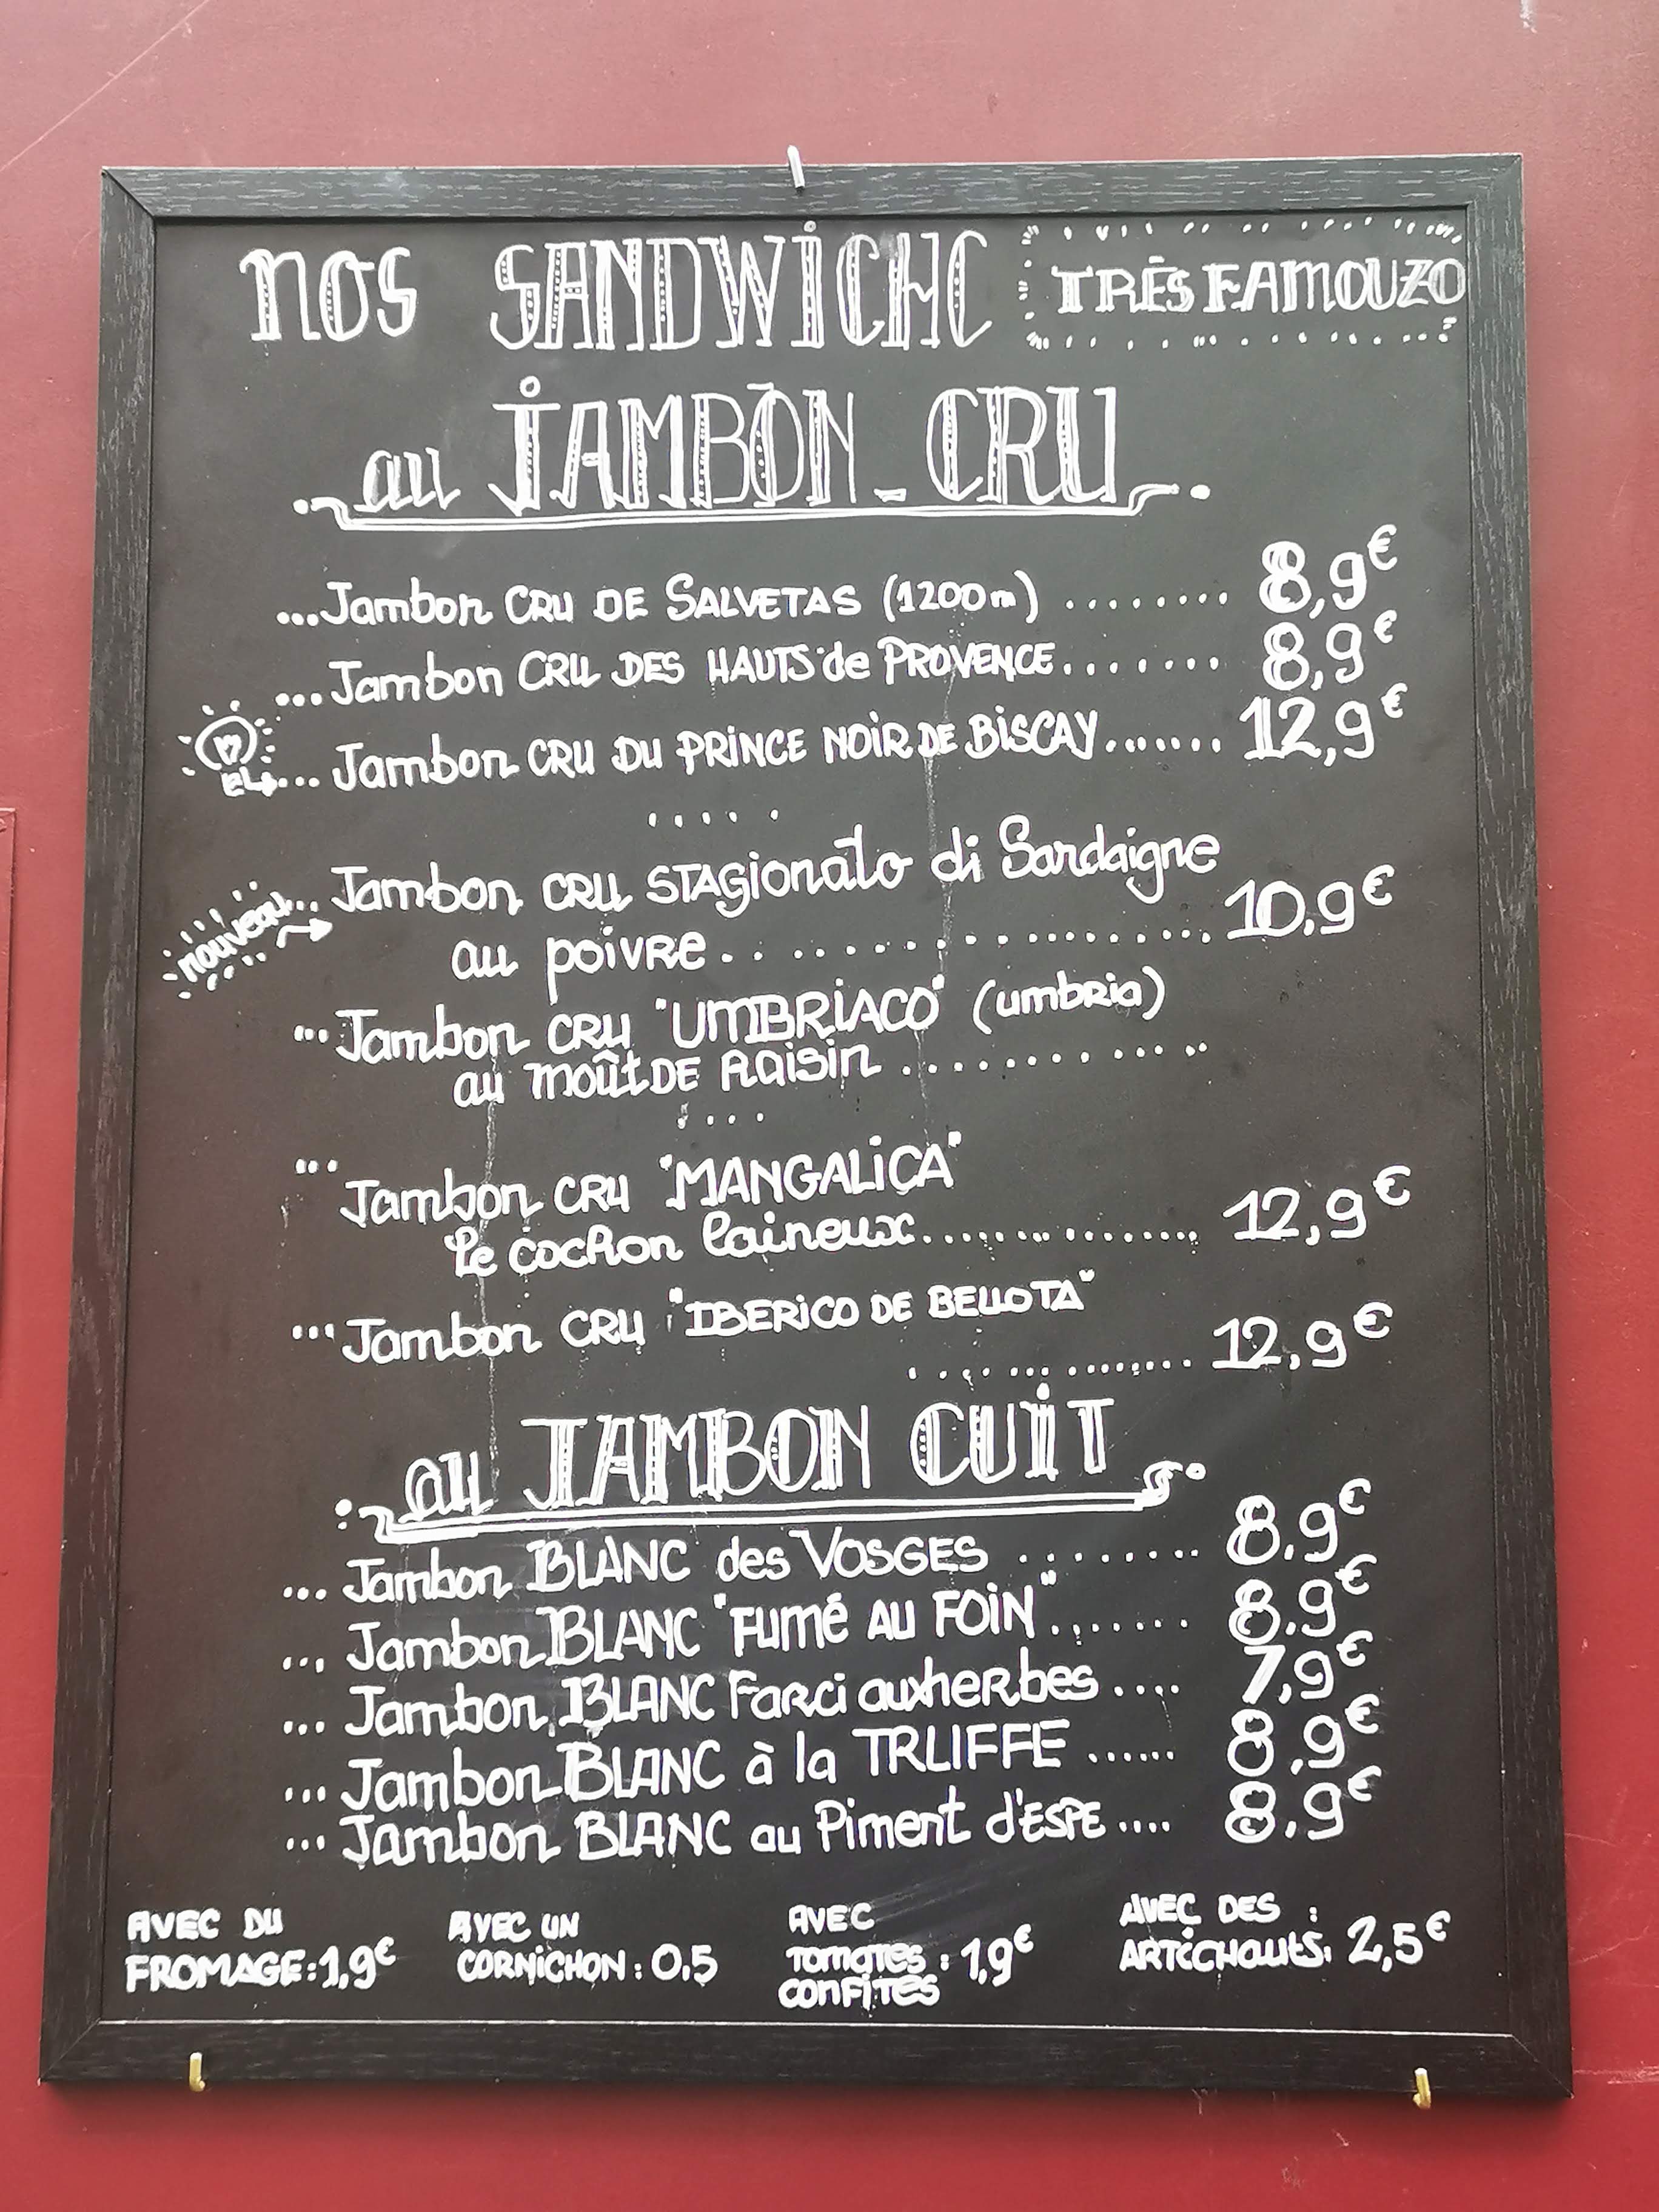 nos SANDWiCHC TRÈS FAMOUZO
au JAMBON_CRU
...Jambon CRU DE SALVETAS (1200m) ........ 8,9€
...Jambon CRU DES HAUTS de PROVENCE....... 8,9€
... Jambon CRU DU PRINCE NOIR DE BISCAY....... 12,9€
.....
nouveau... Jambon CRU STAGionato di Sardaigne
au poivre.................... 10,9€
... Jambon CRU "UMBRIACO" (umbria)
au moût DE Raisin .............
....
... Jambon CRU "MANGALiCA"
Le cochon laineux............... 12,9€
... Jambon CRU "IBERICO DE BELLOTA"
............. 12,9€
au JAMBON CUiT
... Jambon BLANC des VOSGES ........ 8.9€
... Jambon BLANC "FUMÉ AU FOiN"....... 8.9€
... Jambon BLANC Farci aux herbes .... 7,9€
... Jambon BLANC à la TRUFFE ...... 8,9€
... Jambon BLANC au Piment d'ESPE .... 8.9€
AVEC DU
FROMAGE:1,9€
AVEC UN
CORNiCHON : 0.5
AVEC
TOMATES : 1,9€
CONFITES
AVEC DES :
ARTiCHAUtS. 2,5€